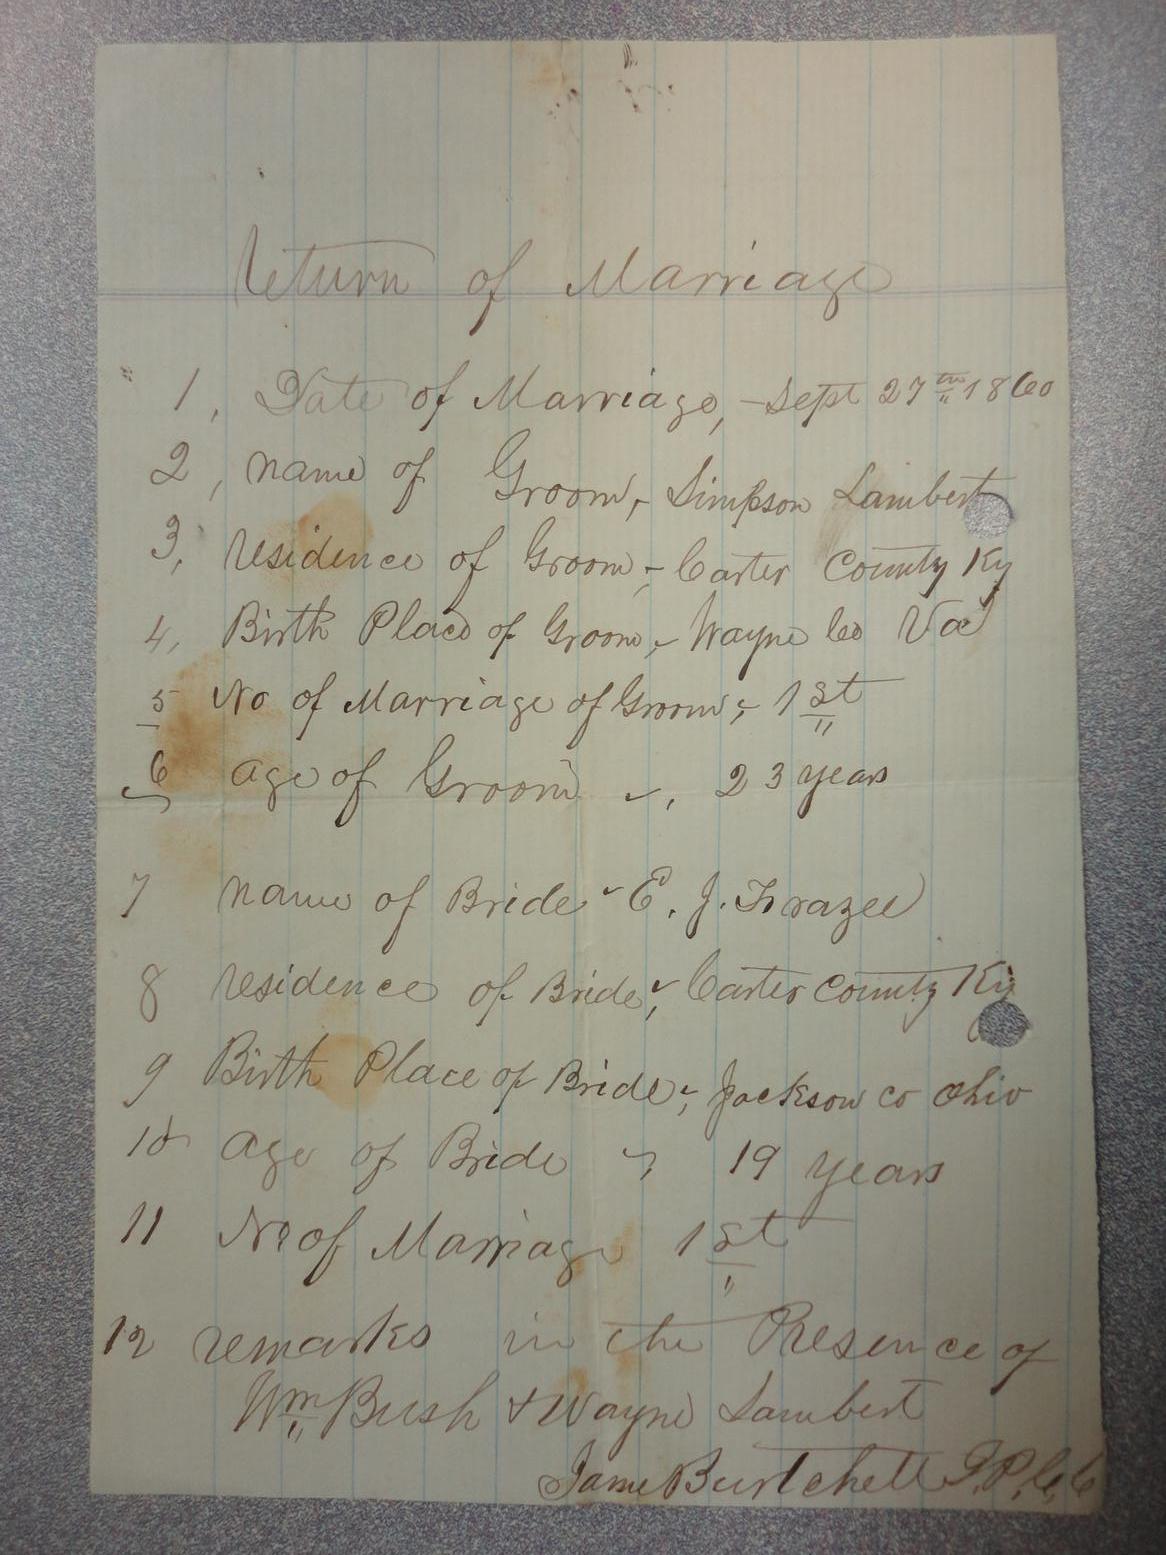 Return of Marriage
1, Date of Marriage, - Sept 27th 1860
2, name of Groom, - Simpson Lambert
3, residence of Groom - Carter County Ky
4, Birth Place of Groom, - Wayne Co Va
5 No of Marriage of Groom, - 1st
6 age of Groom - , 23 years
7 name of Bride - E. J. Frazee
8 residence of Bride, - Carter County Ky
9 Birth Place of Bride, - Jackson co Ohio
10 age of Bride - , 19 years
11 No of Marriage 1st
12 remarks in the Presence of
Wm Bush & Wayne Lambert
Jame Burtchett J.P.C.C